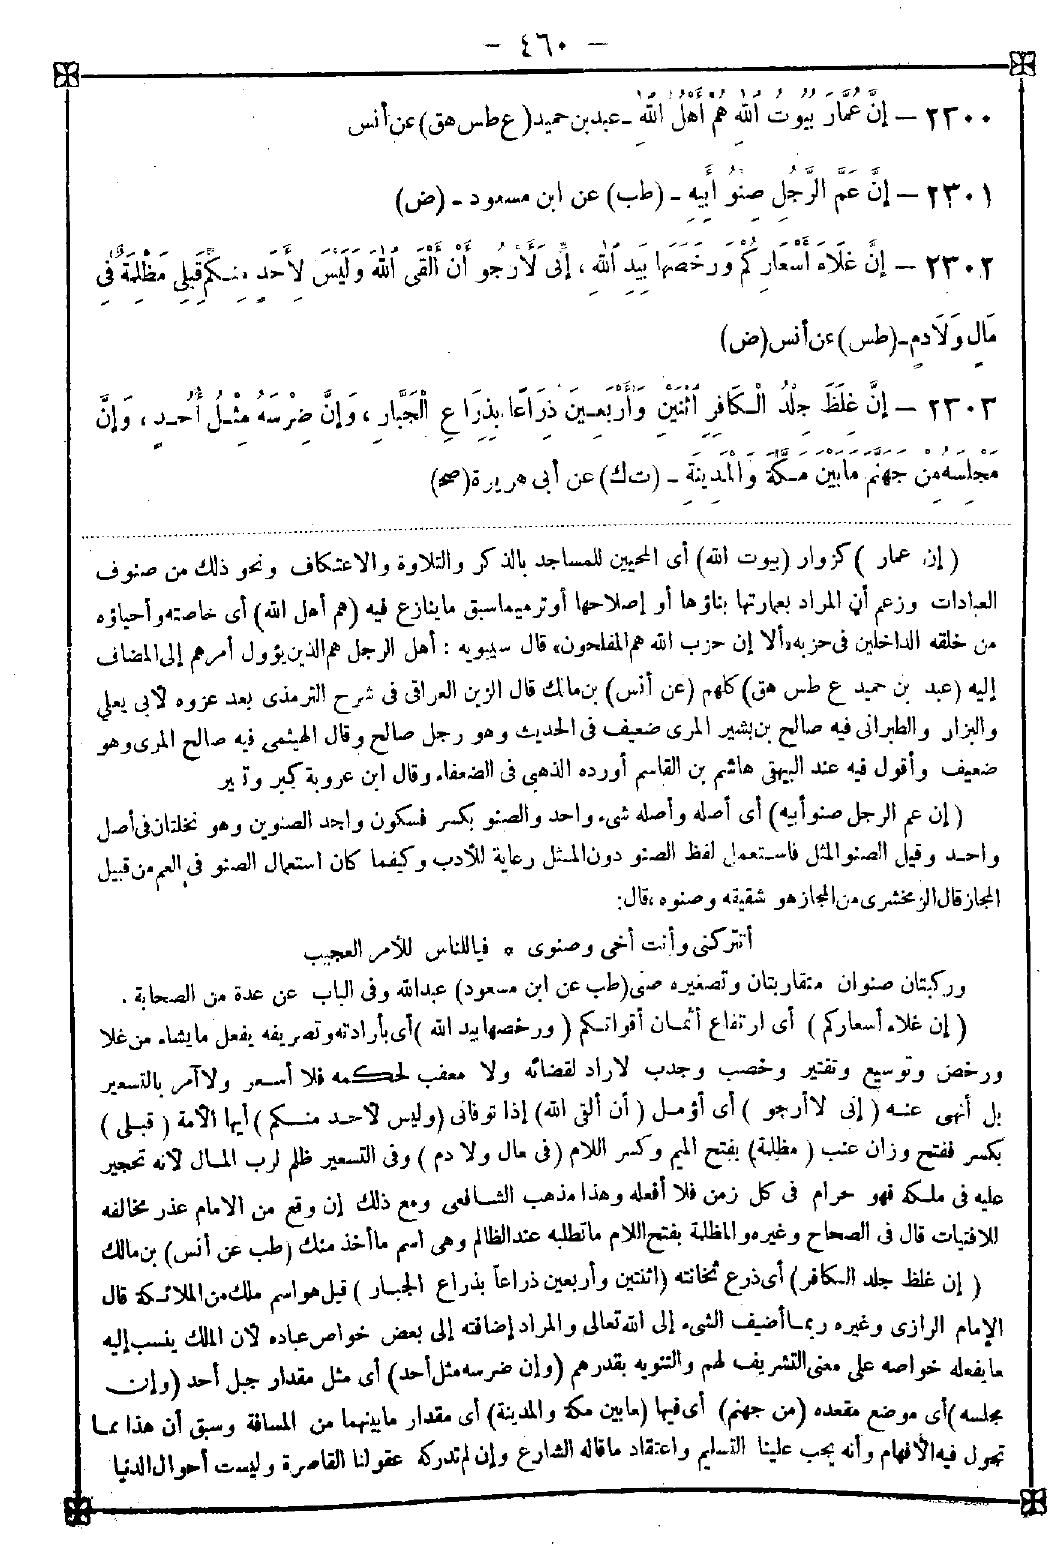 - ٤٦٠ -
٢٣٠٠ - إِنَّ عُمَّارَ بُيُوتِ اللهِ هُمْ أَهْلُ اللهِ - عبد بن حميد (ع طس هق) عن أنس
٢٣٠١ - إِنَّ عَمَّ الرَّجُلِ صِنْوُ أَبِيهِ - (طب) عن ابن مسعود - (ض)
٢٣٠٢ - إِنَّ غَلَاءَ أَسْعَارِكُمْ وَرُخْصَهَا بِيَدِ اللهِ ، إِنِّي لَأَرْجُو أَنْ أَلْقَى اللهَ وَلَيْسَ لِأَحَدٍ مِنْكُمْ قِبَلِي مَظْلِمَةٌ فِي
مَالٍ وَلَا دَمٍ - (طس) عن أنس (ض)
٢٣٠٣ - إِنَّ غِلَظَ جِلْدِ الْكَافِرِ اثْنَيْنِ وَأَرْبَعِينَ ذِرَاعًا بِذِرَاعِ الْجَبَّارِ ، وَإِنَّ ضِرْسَهُ مِثْلُ أُحُدٍ ، وَإِنَّ
مَجْلِسَهُ مِنْ جَهَنَّمَ مَا بَيْنَ مَكَّةَ وَالْمَدِينَةِ - (ت ك) عن أبى هريرة (صح)
( إن عمار ) كزوار (بيوت الله) أى المحيين للمساجد بالذكر والتلاوة والاعتكاف ونحو ذلك من صنوف
العبادات وزعم أن المراد بعمارتها بناؤها أو إصلاحها أو ترميمها سبق ما ينازع فيه (هم أهل الله) أى خاصته وأحباؤه
من خلقه الداخلين فى حزبه «ألا إن حزب الله هم المفلحون» قال سيبويه : أهل الرجل هم الذين يؤول أمرهم إلى المضاف
إليه (عبد بن حميد ع طس هق) كلهم (عن أنس) بن مالك قال الزين العراقى فى شرح الترمذى بعد عزوه لأبى يعلي
والبزار والطبرانى فيه صالح بن بشير المرى ضعيف فى الحديث وهو رجل صالح وقال الهيثمى فيه صالح المرى وهو
ضعيف وأقول فيه عند البيهقى هاشم بن القاسم أورده الذهبي فى الضعفاء وقال ابن عروبة كبر وتغير
( إن عم الرجل صنو أبيه) أى أصله وأصله شىء واحد والصنو بكسر فسكون واحد الصنوين وهو نخلتان فى أصل
واحد وقيل الصنو المثل فاستعمل لفظ الصنو دون المثل رعاية للأدب وكيفما كان استعمال الصنو فى العم من قبيل
المجاز قال الزمخشرى من المجاز هو شقيقه وصنوه ،قال:
أتتركنى وأنت أخى وصنوى * فياللناس للأمر العجيب
وركبتان صنوان متقاربتان وتصغيره صنى (طب عن ابن مسعود) عبدالله وفى الباب عن عدة من الصحابة .
( إن غلاء أسعاركم ) أى ارتفاع أثمان أقواتكم ( ورخصها بيد الله ) أى بأرادته وتصريفه يفعل ما يشاء من غلا
ورخص وتوسيع وتقتير وخصب وجدب لاراد لقضائه ولا معقب لحكمه فلا أسعر ولا آمر بالتسعير
بل أنهى عنه ( إنى لأرجو ) أى أؤمل ( أن ألقى الله) إذا توفانى (وليس لأحد منكم ) أيها الأمة ( قبلى )
بكسر ففتح وزان عنب ( مظلمة) بفتح الميم وكسر اللام ( فى مال ولا دم ) وفى التسعير ظلم لرب المال لأنه تحجير
عليه فى ملكه فهو حرام فى كل زمن فلا أفعله وهذا مذهب الشافعى ومع ذلك إن وقع من الامام عذر مخالفه
للافتيات قال فى الصحاح وغيره والمظلمة بفتح اللام ما تطلبه عند الظالم وهى اسم ما أخذ منك (طب عن أنس) بن مالك
( إن غلظ جلد الكافر ) أى ذرع ثخانته (اثنتين وأربعين ذراعاً بذراع الجبار ) قيل هو اسم ملك من الملائكة قال
الإمام الرازى وغيره ربما أضيف الشىء إلى الله تعالى والمراد إضافته إلى بعض خواص عباده لأن الملك ينسب إليه
ما يفعله خواصه على معنى التشريف لهم والتنويه بقدرهم (وإن ضرسه مثل أحد) أى مثل مقدار جبل أحد (وإن
مجلسه) أى موضع مقعده (من جهنم) أى فيها (مابين مكة والمدينة) أى مقدار ما بينهما من المسافة وسبق أن هذا مما
تجول فيه الأفهام وأنه يجب علينا التسليم واعتقاد ماقاله الشارع وإن لم تدركه عقولنا القاصرة وليست أحوال الدنيا